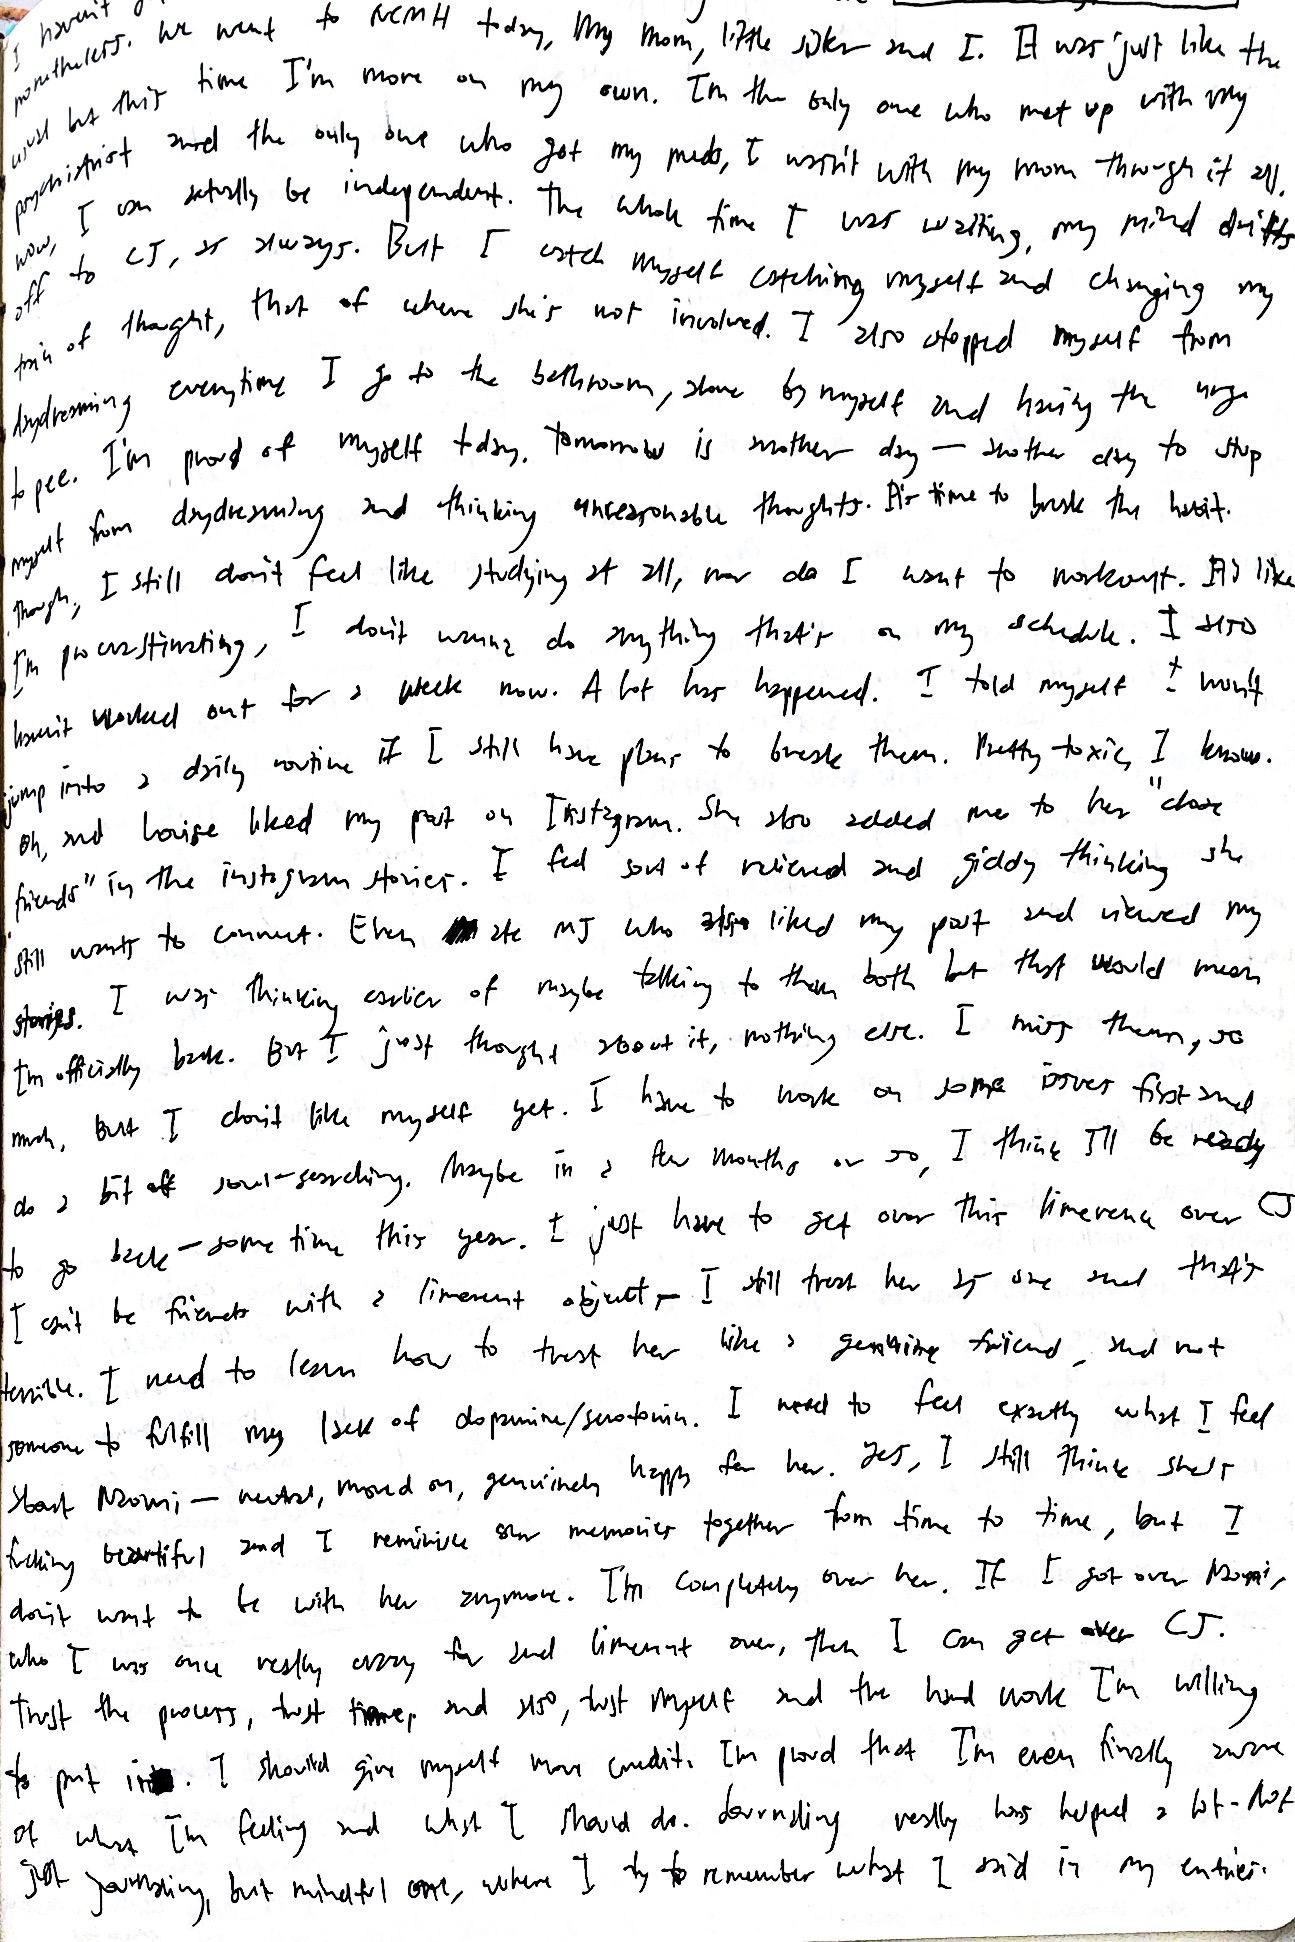 I haven't
nonetheless. We went to NCMH today, My mom, little sister and I. It was just like the
usual but this time I'm more on my own. I'm the only one who met up with my
psychiatrist and the only one who got my meds, I wasn't with my mom through it all.
now, I can actually be independent. The whole time I was waiting, my mind drifts
off to CJ, as always. But I catch myself catching myself and changing my
train of thought, that of where she's not involved. I also stopped myself from
daydreaming everytime I go to the bathroom, alone by myself and having the urge
to pee. I'm proud of myself today. Tomorrow is another day — another day to stop
myself from daydreaming and thinking unreasonable thoughts. It's time to break the habit.
Though, I still don't feel like studying at all, nor do I want to workout. It's like
I'm procrastinating, I don't wanna do anything that's on my schedule. I also
haven't worked out for a week now. A lot has happened. I told myself I won't
jump into a daily routine if I still have plans to break them. Pretty toxic, I know.
Oh, and Louise liked my post on Instagram. She also added me to her "close
friends" in the instagram stories. I feel sort of relieved and giddy thinking she
still wants to connect. Even ate MJ who also liked my post and viewed my
stories. I was thinking earlier of maybe talking to them both but that would mean
I'm officially back. But I just thought about it, nothing else. I miss them, so
much, but I don't like myself yet. I have to work on some issues first and
do a bit of soul-searching. Maybe in a few months or so, I think I'll be ready
to go back — some time this year. I just have to get over this limerence over CJ
I can't be friends with a limerent object — I still treat her as one and that's
terrible. I need to learn how to treat her like a genuine friend, and not
someone to fulfill my lack of dopamine/serotonin. I need to feel exactly what I feel
about Naomi — neutral, moved on, genuinely happy for her. Yes, I still think she's
fucking beautiful and I reminisce our memories together from time to time, but I
don't want to be with her anymore. I'm completely over her. If I got over Naomi,
who I was once really crazy for and limerent over, then I can get over CJ.
Trust the process, trust time, and also, trust myself and the hard work I'm willing
to put in. I should give myself more credit. I'm proud that I'm even finally aware
of what I'm feeling and what I should do. Journaling really has helped a lot - Not
just journaling, but mindful one, where I try to remember what I said in my entries.